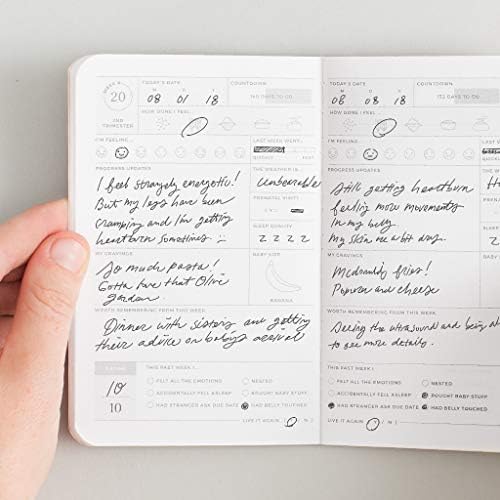 WEEK #
20
2ND
TRIMESTER
TODAY'S DATE
M D Y
08 01 18
COUNTDOWN
DAYS TO GO
HOW DO/DID I FEEL
I'M FEELING...
LAST WEEK WENT...
QUICKLY
PROGRESS UPDATES
I feel strangely energetic!
But my legs have been
cramping and I'm getting
heartburn sometimes :(
THE WEATHER IS
Unbearable
PRENATAL VISIT?
SLEEP QUALITY
Z Z Z Z
MY CRAVINGS
So much pasta!
Gotta love that Olive
Garden.
BABY SIZE
BANANA
WORTH REMEMBERING FROM THIS WEEK
Dinner with sisters and getting
their advice on baby's arrival
10
10
THIS PAST WEEK I...
FELT ALL THE EMOTIONS
NESTED
ACCIDENTALLY FELL ASLEEP
BOUGHT BABY STUFF
HAD STRANGER ASK DUE DATE
HAD BELLY TOUCHED
LIVE IT AGAIN Y / N
TODAY'S DATE
M D Y
08 08 18
COUNTDOWN
132 DAYS TO GO
I'M FEELING...
LAST WEEK
QUICKLY
PROGRESS UPDATES
Still getting heartburn
feeling more movements
in my belly.
My skin is a bit dry.
THE W
PRENA
SLEEP
MY CRAVINGS
Mcdonalds fries!
Popcorn and cheese
BABY
WORTH REMEMBERING FROM THIS WEEK
Seeing the ultrasound and being ab
to see more details.
THIS PAST WEEK I...
FELT ALL THE EMOTIONS
NESTED
ACCIDENTALLY FELL ASLEEP
BOUGHT BABY STUFF
HAD STRANGER ASK DUE DATE
HAD BELLY TOUCHED
LIVE IT AGAIN Y / N